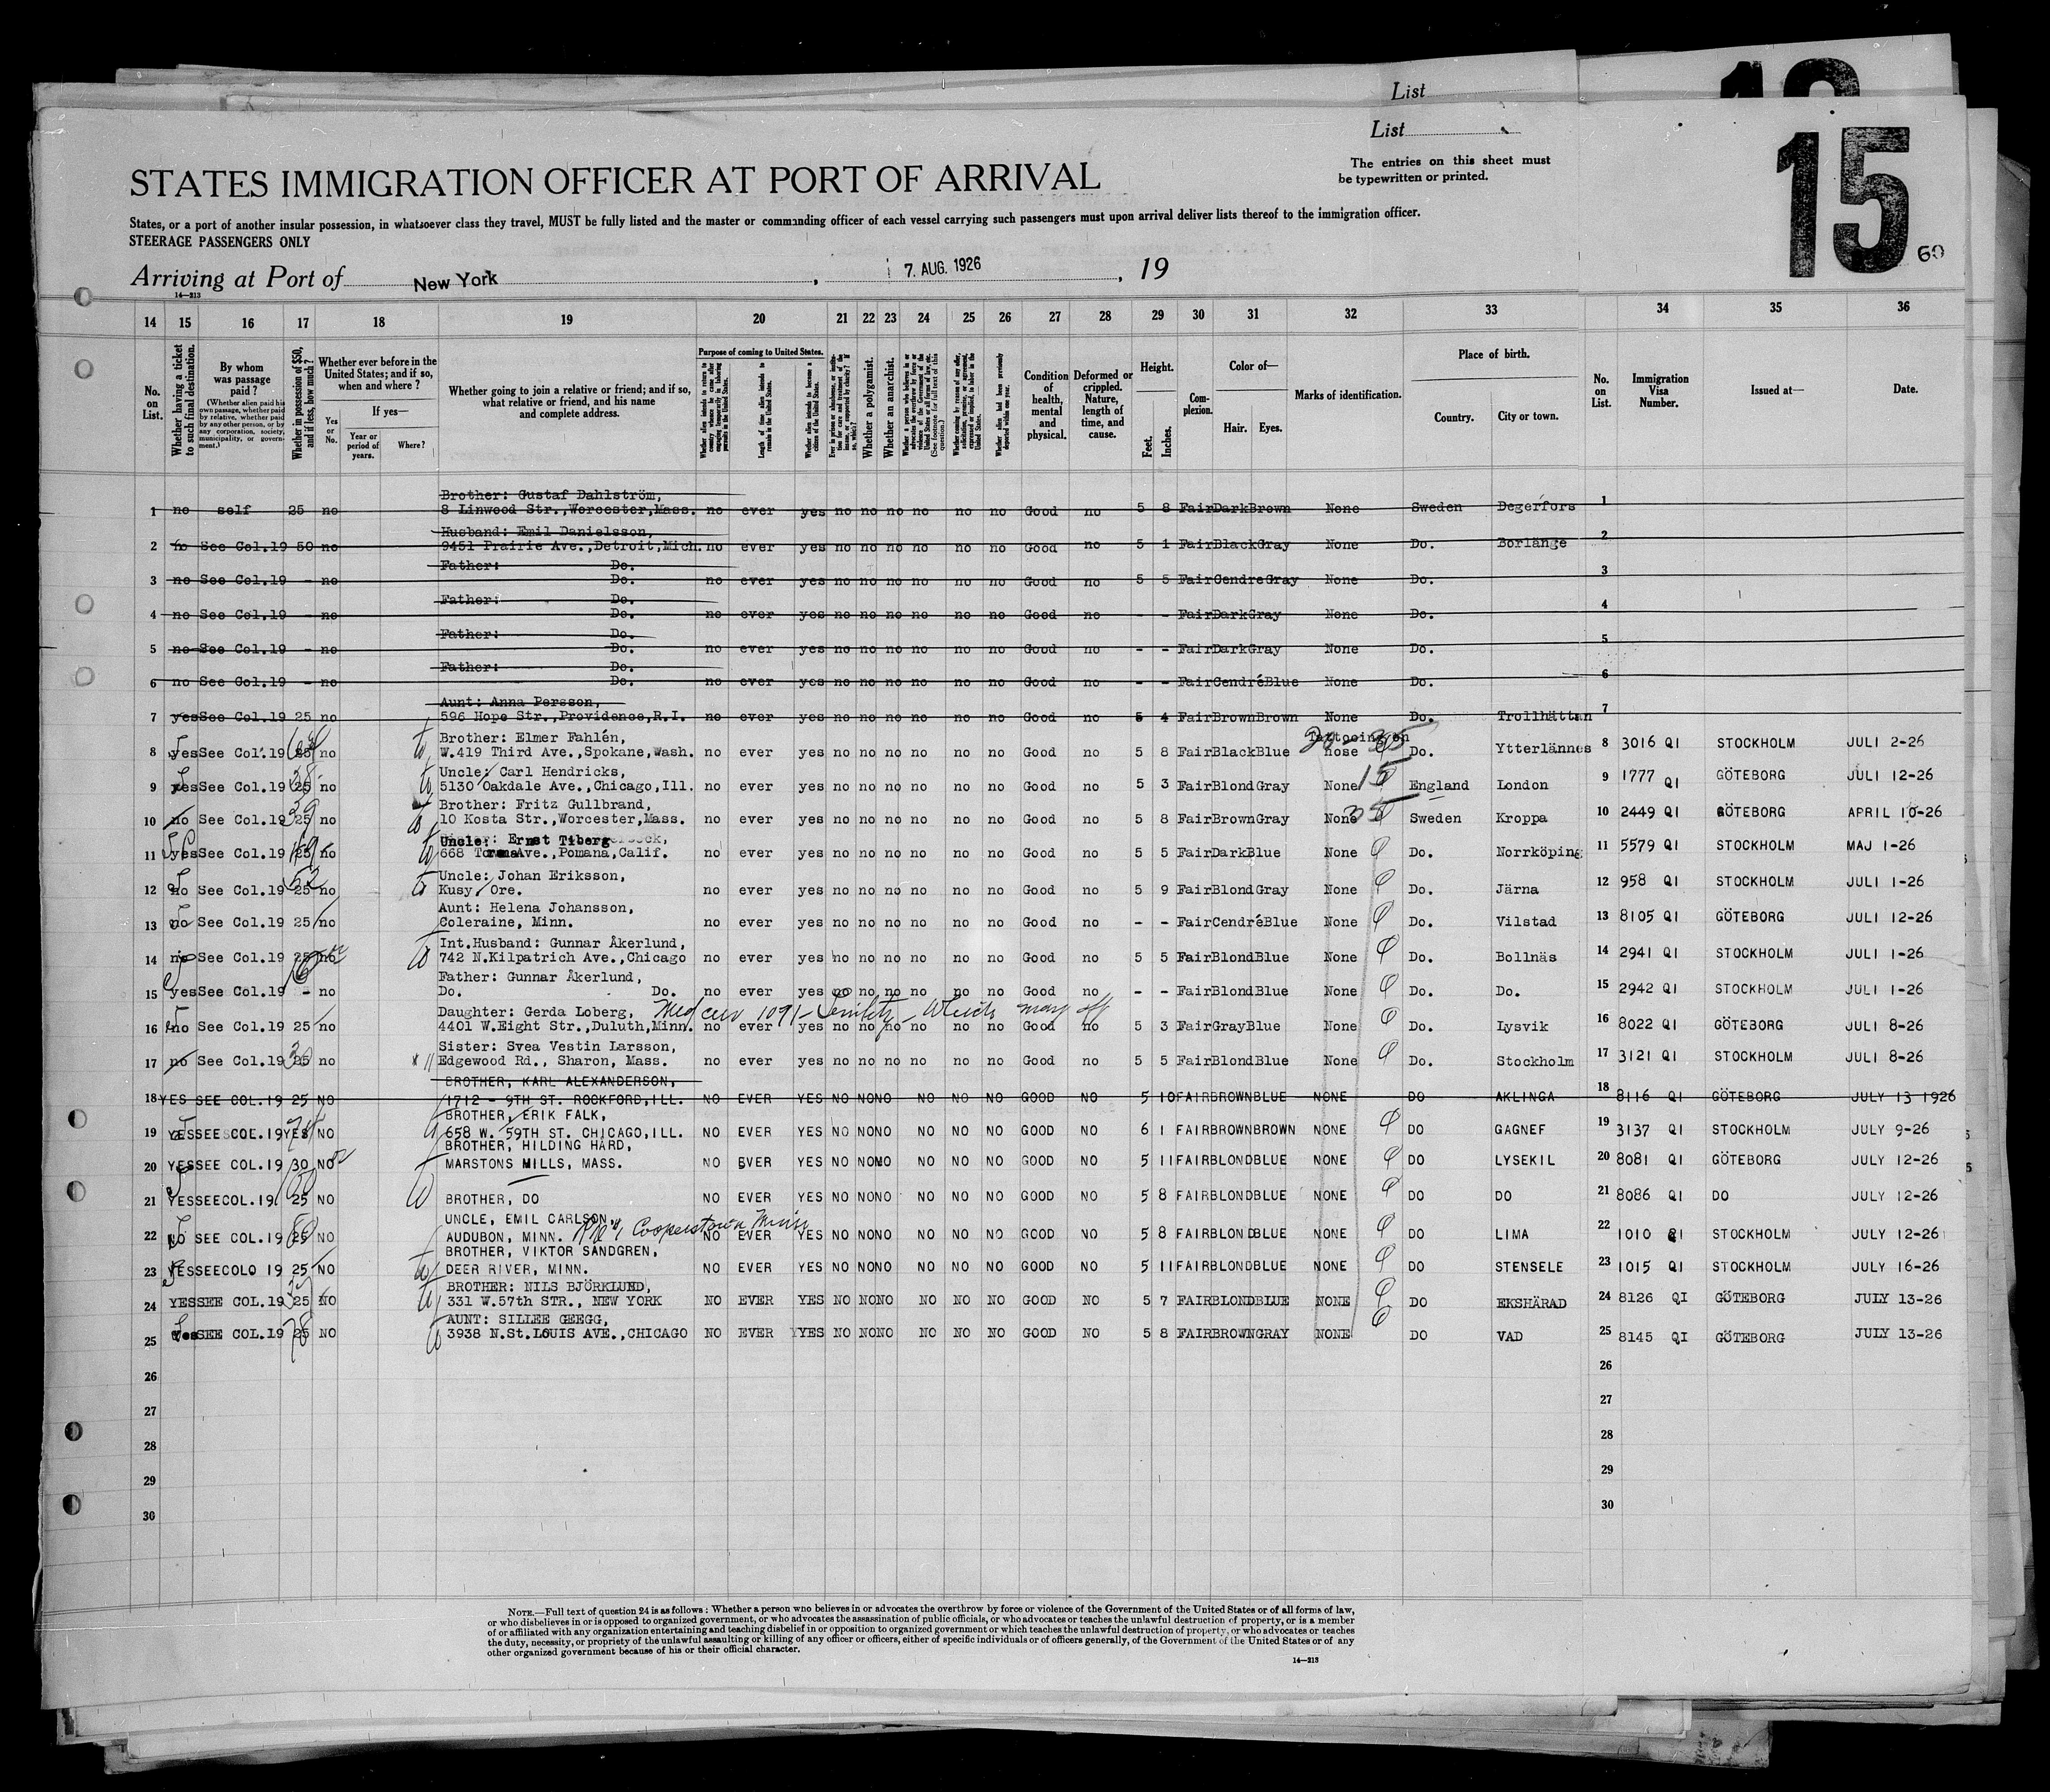 List
List
15
60
The entries on this sheet must
be typewritten or printed.
STATES IMMIGRATION OFFICER AT PORT OF ARRIVAL
States, or a port of another insular possession, in whatsoever class they travel, MUST be fully listed and the master or commanding officer of each vessel carrying such passengers must upon arrival deliver lists thereof to the immigration officer.
STEERAGE PASSENGERS ONLY
Arriving at Port of New York , 7. AUG. 1926 , 19
14—213
14 15 16 17 18 19 20 21 22 23 24 25 26 27 28 29 30 31 32 33 34 35 36
No. on List.
Whether having a ticket to such final destination.
By whom was passage paid?
(Whether alien paid his own passage, whether paid by relative, whether paid by any other person, or by any corporation, society, municipality, or government.)
Whether in possession of $50, and if less, how much?
Whether ever before in the United States; and if so, when and where?
Yes or No.
If yes—
Year or period of years.
Where?
Whether going to join a relative or friend; and if so, what relative or friend, and his name and complete address.
Purpose of coming to United States.
Length of time alien intends to remain in the United States.
Whether alien intends to become a citizen of the United States.
Whether a polygamist.
Whether an anarchist.
Condition of health, mental and physical.
Deformed or crippled. Nature, length of time, and cause.
Height.
Feet. Inches.
Complexion.
Color of—
Hair. Eyes.
Marks of identification.
Place of birth.
Country. City or town.
No. on List.
Immigration Visa Number.
Issued at—
Date.
Brother: Gustaf Dahlström,
1 no self 25 no 8 Linwood Str.,Worcester,Mass. no ever yes no no no no no no Good no 5 8 Fair Dark Brown None Sweden Degerfors 1
Husband: Emil Danielsson,
2 no See Col.19 50 no 9451 Prairie Ave.,Detroit,Mich. no ever yes no no no no no no Good no 5 1 Fair Black Gray None Do. Borlänge 2
Father: Do.
3 no See Col.19 - no Do. no ever yes no no no no no no Good no 5 5 Fair Cendre Gray None Do. 3
Father: Do.
4 no See Col.19 - no Do. no ever yes no no no no no no Good no - - Fair Dark Gray None Do. 4
Father: Do.
5 no See Col.19 - no Do. no ever yes no no no no no no Good no - - Fair Dark Gray None Do. 5
Father: Do.
6 no See Col.19 - no Do. no ever yes no no no no no no Good no - - Fair Cendré Blue None Do. 6
Aunt: Anna Persson,
7 yes See Col.19 25 no 596 Hope Str.,Providence,R.I. no ever yes no no no no no no Good no 5 4 Fair Brown Brown None Do. Trollhättan 7
Brother: Elmer Fahlén, Tattooing on
8 yes See Col.19 no W.419 Third Ave.,Spokane,Wash. no ever yes no no no no no no Good no 5 8 Fair Black Blue nose Do. Ytterlännes 8 3016 QI STOCKHOLM JULI 2-26
Uncle: Carl Hendricks,
9 yes See Col.19 25 no 5130 Oakdale Ave.,Chicago,Ill. no ever yes no no no no no no Good no 5 3 Fair Blond Gray None England London 9 1777 QI GÖTEBORG JULI 12-26
Brother: Fritz Gullbrand,
10 no See Col.19 25 no 10 Kosta Str.,Worcester,Mass. no ever yes no no no no no no Good no 5 8 Fair Brown Gray None Sweden Kroppa 10 2449 QI GÖTEBORG APRIL 10-26
Uncle: Ernst Tiberg
11 yes See Col.19 25 no 668 Ave.,Pomana,Calif. no ever yes no no no no no no Good no 5 5 Fair Dark Blue None Do. Norrköping 11 5579 QI STOCKHOLM MAJ 1-26
Uncle: Johan Eriksson,
12 no See Col.19 25 no Kusy, Ore. no ever yes no no no no no no Good no 5 9 Fair Blond Gray None Do. Järna 12 958 QI STOCKHOLM JULI 1-26
Aunt: Helena Johansson,
13 no See Col.19 25 no Coleraine, Minn. no ever yes no no no no no no Good no - - Fair Cendré Blue None Do. Vilstad 13 8105 QI GÖTEBORG JULI 12-26
Int.Husband: Gunnar Åkerlund,
14 no See Col.19 25 no 742 N.Kilpatrich Ave.,Chicago no ever yes no no no no no no Good no 5 5 Fair Blond Blue None Do. Bollnäs 14 2941 QI STOCKHOLM JULI 1-26
Father: Gunnar Åkerlund,
15 yes See Col.19 - no Do. Do. no ever yes no no no no no no Good no - - Fair Blond Blue None Do. Do. 15 2942 QI STOCKHOLM JULI 1-26
Daughter: Gerda Loberg, Med cer 1091 - Senility - Which may aff
16 no See Col.19 25 no 4401 W.Eight Str.,Duluth,Minn. no ever yes no no no no no no Good no 5 3 Fair Gray Blue None Do. Lysvik 16 8022 QI GÖTEBORG JULI 8-26
Sister: Svea Vestin Larsson,
17 no See Col.19 25 no Edgewood Rd., Sharon, Mass. no ever yes no no no no no no Good no 5 5 Fair Blond Blue None Do. Stockholm 17 3121 QI STOCKHOLM JULI 8-26
BROTHER, KARL ALEXANDERSON,
18 YES SEE COL.19 25 NO 1712 - 9TH ST. ROCKFORD,ILL. NO EVER YES NO NO NO NO NO NO GOOD NO 5 10 FAIR BROWN BLUE NONE DO AKLINGA 18 8116 QI GÖTEBORG JULY 13 1926
BROTHER, ERIK FALK,
19 YES SEE COL.19 YES NO 658 W. 59TH ST. CHICAGO,ILL. NO EVER YES NO NO NO NO NO NO GOOD NO 6 1 FAIR BROWN BROWN NONE DO GAGNEF 19 3137 QI STOCKHOLM JULY 9-26
BROTHER, HILDING HÅRD,
20 YES SEE COL.19 30 NO MARSTONS MILLS, MASS. NO EVER YES NO NO NO NO NO NO GOOD NO 5 11 FAIR BLOND BLUE NONE DO LYSEKIL 20 8081 QI GÖTEBORG JULY 12-26
21 YES SEE COL.19 25 NO BROTHER, DO NO EVER YES NO NO NO NO NO NO GOOD NO 5 8 FAIR BLOND BLUE NONE DO DO 21 8086 QI DO JULY 12-26
UNCLE, EMIL CARLSON, Cooperstown
22 NO SEE COL.19 25 NO AUDUBON, MINN. NO EVER YES NO NO NO NO NO NO GOOD NO 5 8 FAIR BLOND BLUE NONE DO LIMA 22 1010 QI STOCKHOLM JULY 12-26
BROTHER, VIKTOR SANDGREN,
23 YES SEE COLO 19 25 NO DEER RIVER, MINN. NO EVER YES NO NO NO NO NO NO GOOD NO 5 11 FAIR BLOND BLUE NONE DO STENSELE 23 1015 QI STOCKHOLM JULY 16-26
BROTHER: NILS BJÖRKLUND,
24 YES SEE COL.19 25 NO 331 W.57th STR., NEW YORK NO EVER YES NO NO NO NO NO NO GOOD NO 5 7 FAIR BLOND BLUE NONE DO EKSHÄRAD 24 8126 QI GÖTEBORG JULY 13-26
AUNT: SILLEE GEEGG,
25 Yes SEE COL.19 25 NO 3938 N.St.LOUIS AVE.,CHICAGO NO EVER YES NO NO NO NO NO NO GOOD NO 5 8 FAIR BROWN GRAY NONE DO VAD 25 8145 QI GÖTEBORG JULY 13-26
26 26
27 27
28 28
29 29
30 30
NOTE.—Full text of question 24 is as follows: Whether a person who believes in or advocates the overthrow by force or violence of the Government of the United States or of all forms of law,
or who disbelieves in or is opposed to organized government, or who advocates the assassination of public officials, or who advocates or teaches the unlawful destruction of property, or is a member
of or affiliated with any organization entertaining and teaching disbelief in or opposition to organized government or which teaches the unlawful destruction of property, or who advocates or teaches
the duty, necessity, or propriety of the unlawful assaulting or killing of any officer or officers, either of specific individuals or of officers generally, of the Government of the United States or of any
other organized government because of his or their official character.
14—213